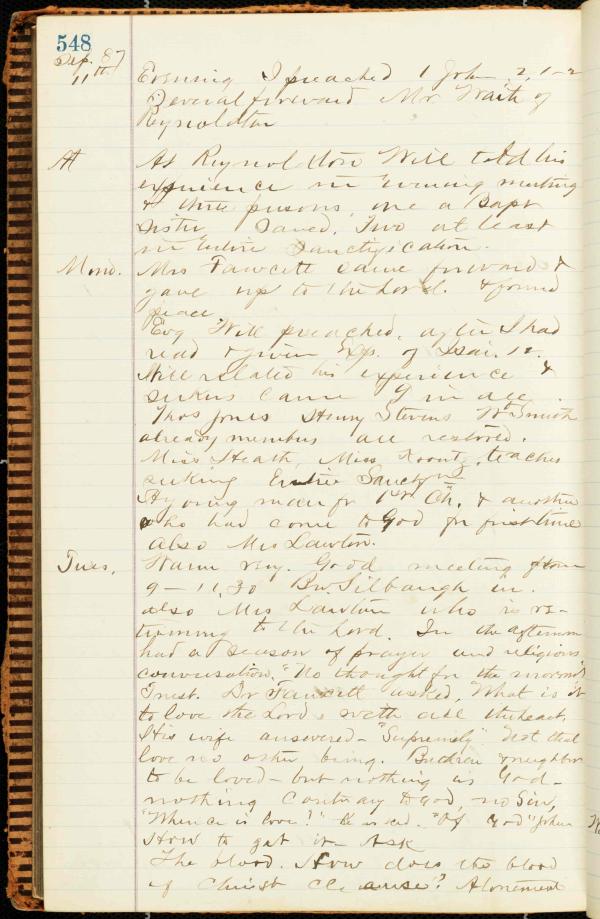 548
Sep. 87
11th
Evening I preached 1 John. 2, 1-2
Several forward Mr. Waith of
Reynoldton
At
At Reynoldton Will told his
experience in evening meeting
& three persons, one a Bapt
sister, saved. Two at least
in Entire Sanctification.
Mond.
Mrs Fawcett came forward &
gave up to the Lord. & found
peace
Evg Will preached, after I had
read & given Exp. of Isai. 12.
Will related his experience &
seekers came 9 in all.
Thos Jones Henry Stevens Wm Smith
already members all restored.
Miss Heath, Miss Koontz, teacher
seeking Entire Sanctfn
A young man fr 1st Ch. & another
who had come to God for first time
also Mrs Lawton.
Tues.
Warm very. Good meeting from
9 - 11,30 Bro. Silbaugh in.
also Mrs Lawton who is re-
turning to the Lord. In the afternoon
had a season of prayer and religious
conversation. "No thought for the morrow"
Trust. Dr Fawcett asked, "What is it
to love the Lord, with all the heart.
His wife answered - "Supremely"
love no other being. & neighbor
to be loved - but nothing as God -
nothing contrary to God, no Sin,
"Whence is love?" "Of God" John
How to get it - Ask
The blood. How does the blood
of Christ cleanse? Atonement